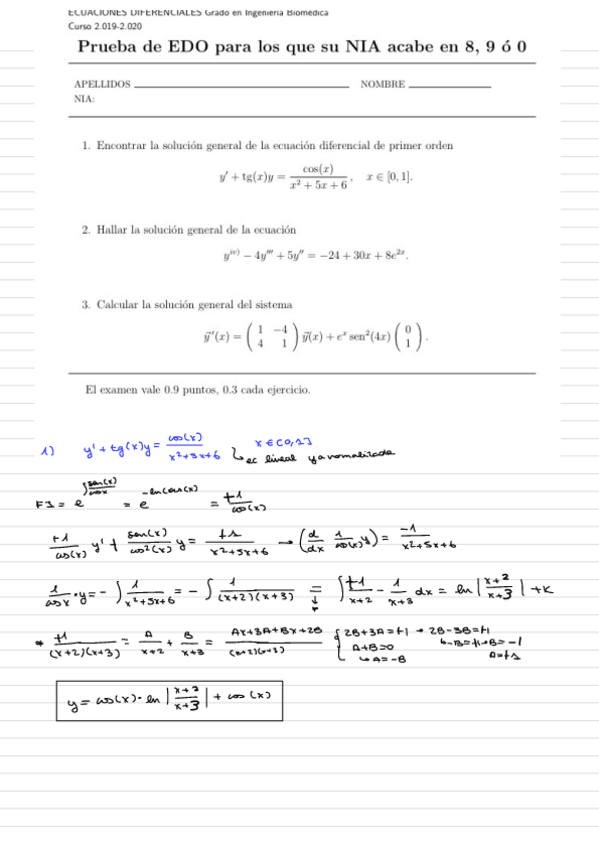 ECUACIONES DIFERENCIALES Grado en Ingeniería Biomédica
Curso 2.019-2.020
Prueba de EDO para los que su NIA acabe en 8, 9 ó 0
APELLIDOS NOMBRE
NIA:
1. Encontrar la solución general de la ecuación diferencial de primer orden
y' + tg(x)y = cos(x) / (x² + 5x + 6), x ∈ [0, 1].
2. Hallar la solución general de la ecuación
y^{iv)} − 4y''' + 5y'' = −24 + 30x + 8e^{2x}.
3. Calcular la solución general del sistema
ȳ'(x) = ( 1 −4 ; 4 1 ) ȳ(x) + e^x sen²(4x) ( 0 ; 1 ).
El examen vale 0.9 puntos, 0.3 cada ejercicio.
1) y' + tg(x)y = cos(x) / (x²+5x+6) x ∈ [0,1]
↳ ec lineal ya normalizada
FI = e^{∫ sen(x)/cos x} = e^{-ln cos(x)} = +1 / cos(x)
+1/cos(x) y' + sen(x)/cos²(x) y = +1/(x²+5x+6) → (d/dx 1/cos(x) y) = -1/(x²+5x+6)
1/cos x · y = -∫ 1/(x²+5x+6) = -∫ 1/((x+2)(x+3)) = ∫ +1/(x+2) - 1/(x+3) dx = ln |(x+2)/(x+3)| + K
* +1/((x+2)(x+3)) = A/(x+2) + B/(x+3) = (Ax+3A+Bx+2B)/((x+2)(x+3)) { 2B+3A=+1 → 2B-3B=+1
A+B=0 ↳ -B=+1 → B=-1
↳ A=-B A=+1
y = cos(x) · ln |(x+2)/(x+3)| + cos(x)